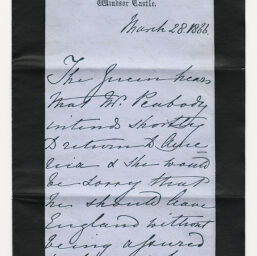 Windsor Castle.
March 28. 1866.
The Queen hears
that Mr. Peabody
intends shortly
to return to Ame
rica & she would
be sorry that
he should leave
England without
being assured